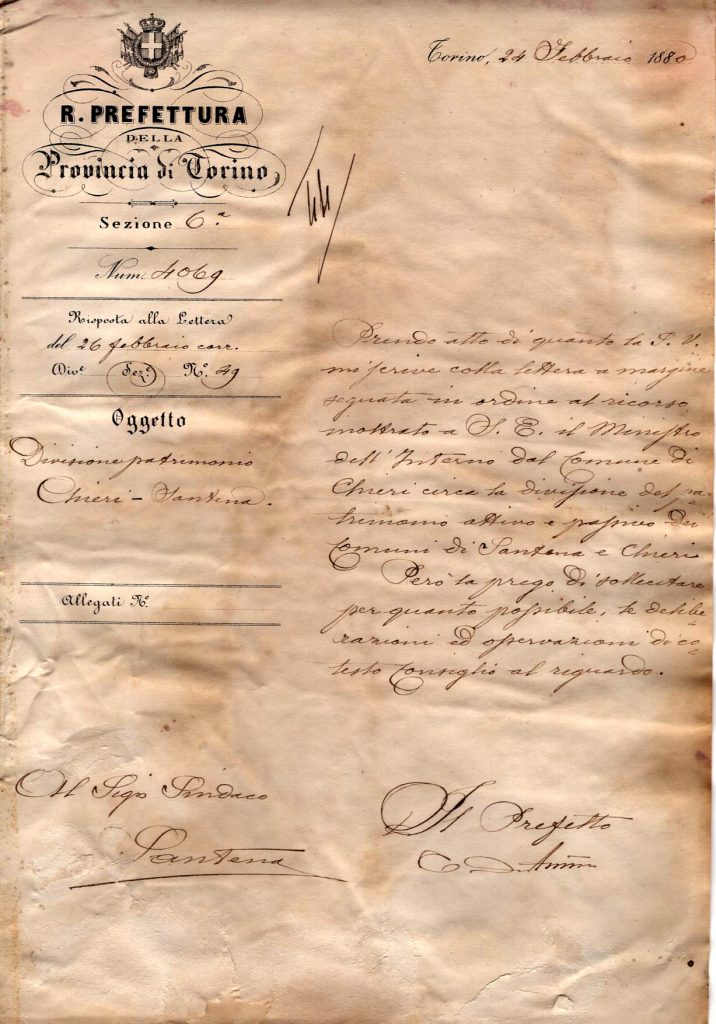 Torino, 24 Febbraio 1880
R. PREFETTURA
DELLA
Provincia di Torino
Sezione 6.a
Num. 4069
Risposta alla Lettera
del 26 febbraio corr.
Div.e Sez.e N.o 49
Oggetto
Divisione patrimonio
Chieri - Santena.
Allegati N.o
44
Prendo atto di quanto la S. V.
mi scrive colla lettera a margine
segnata in ordine al ricorso
mostrato a S. E. il Ministro
dell'Interno dal Comune di
Chieri circa la divisione del pa-
trimonio attivo e passivo dei
Comuni di Santena e Chieri
Però la prego di sollecitare
per quanto possibile, le delibe-
razioni ed osservazioni di co-
testo Consiglio al riguardo.
Al Sigr Sindaco
Santena
Il Prefetto